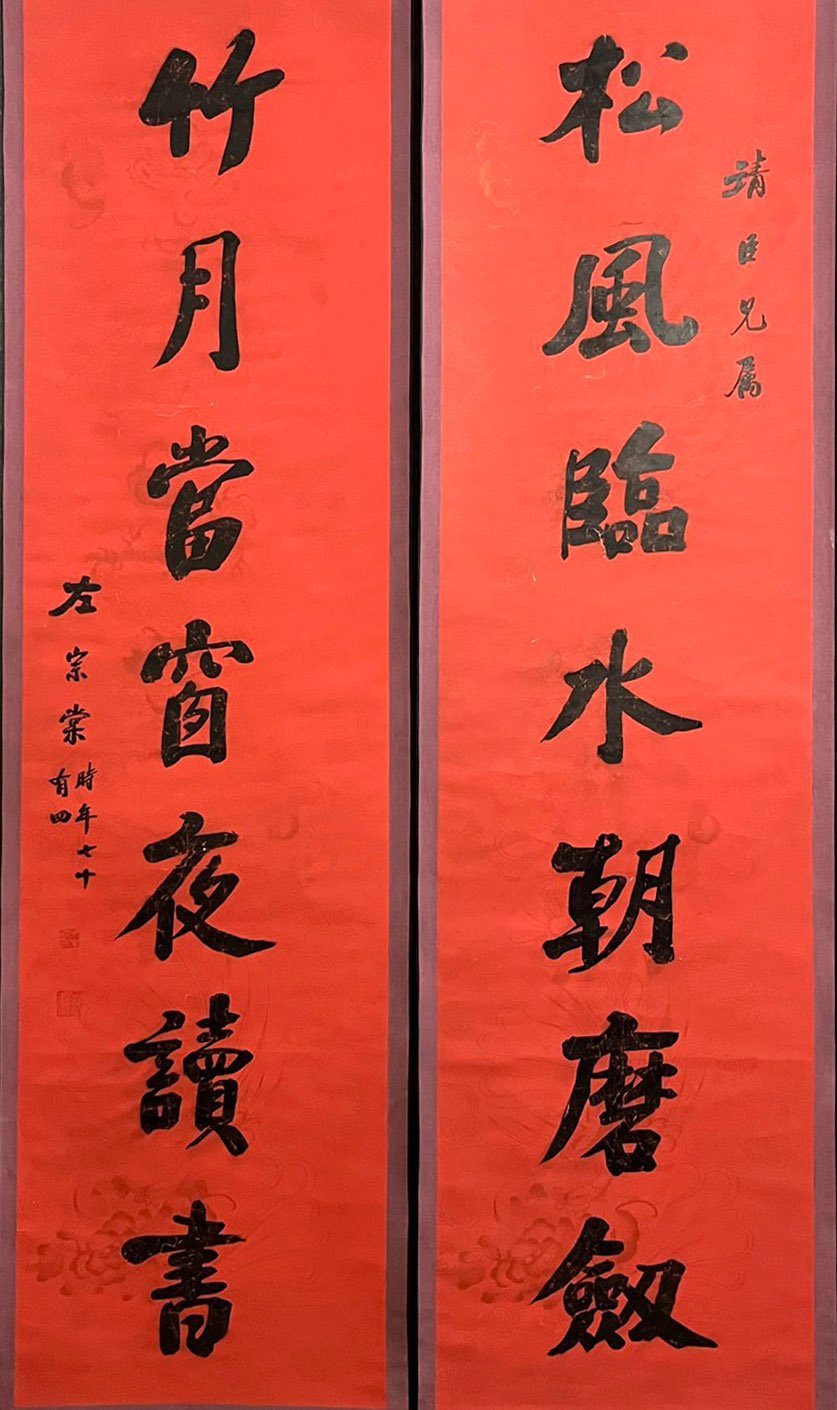 靖臣兄属
松風臨水朝磨劔
竹月當窗夜讀書
左宗棠時年七十
有四